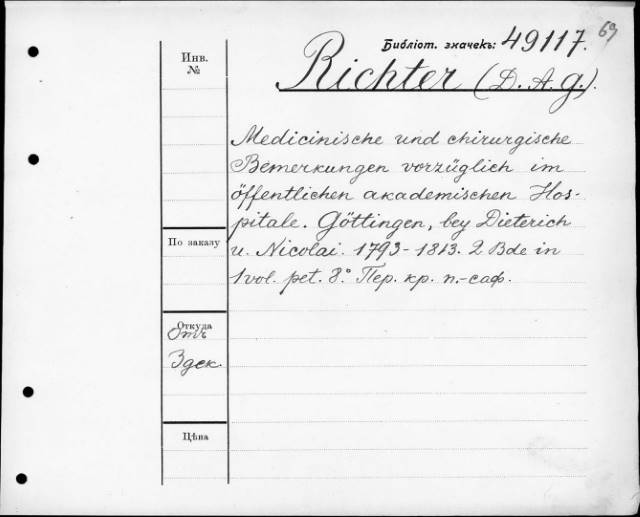 69
Библіот. значекъ: 49117.
Инв.
№
Richter (D. A. G.).
Medicinische und chirurgische
Bemerkungen vorzüglich im
öffentlichen akademischen Hos-
pitale. Göttingen, bey Dieterich
По заказу
u. Nicolai. 1793-1813. 2 Bde in
1 vol. pet. 8.° Пер. кр. п.-саф.
Откуда
Отъ
Здек.
Цѣна